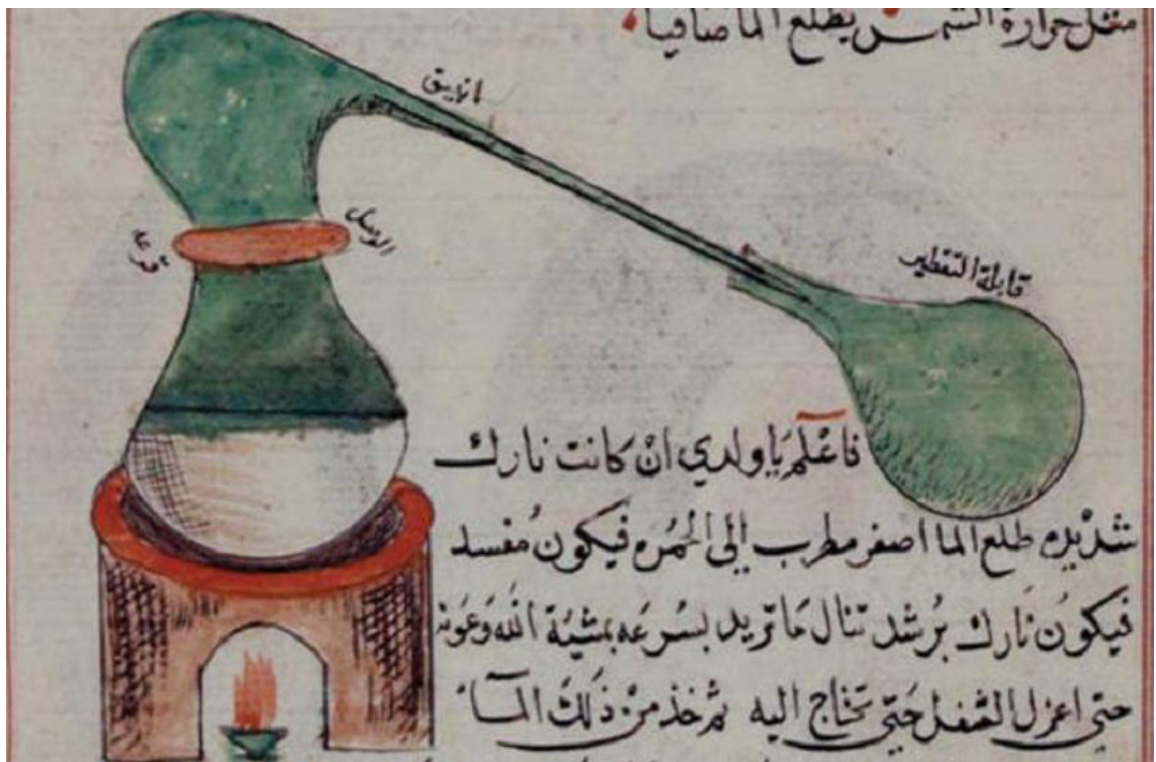 مثل حرارة الشمس يطلع الما صافيا
انبيق
الوصل
قرعه
قابلة التقطير
فاعْلم يَا ولدي انْ كانت نارك
شديده طلع الما اصفر مطرب الى الحُمره فيكون مُفسد
فيكون نَارك برُشد تنال مَا تريد بسُرعَه بمشيّة الله وَعَونه
حتى اعزل الثفل حَتى تحتاج اليه ثم خذ منْ ذلكَ المآء